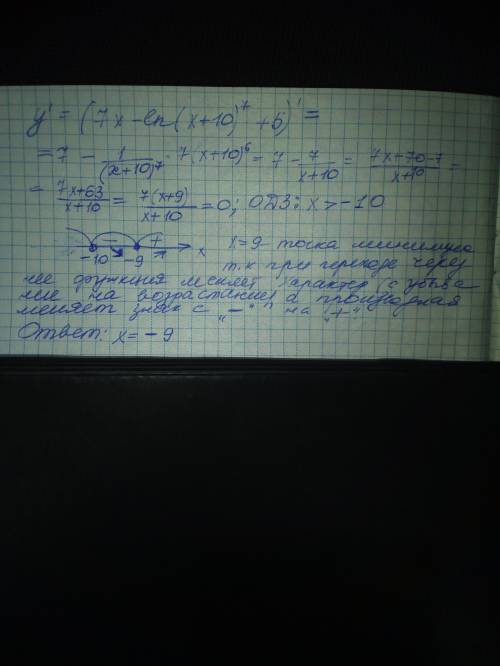 y' = (7x - ln(x+10)^7 + 5)' =
= 7 - 1/(x+10)^7 · 7(x+10)^6 = 7 - 7/(x+10) = (7x+70-7)/(x+10) =
= (7x+63)/(x+10) = 7(x+9)/(x+10) = 0; ОДЗ: x > -10
- + x
-10 -9
x=9 точка минимума
т.к при переходе через
нее функция меняет характер с убыва
ние на возрастание, а производная
меняет знак с „-" на „+"
Ответ: x = -9